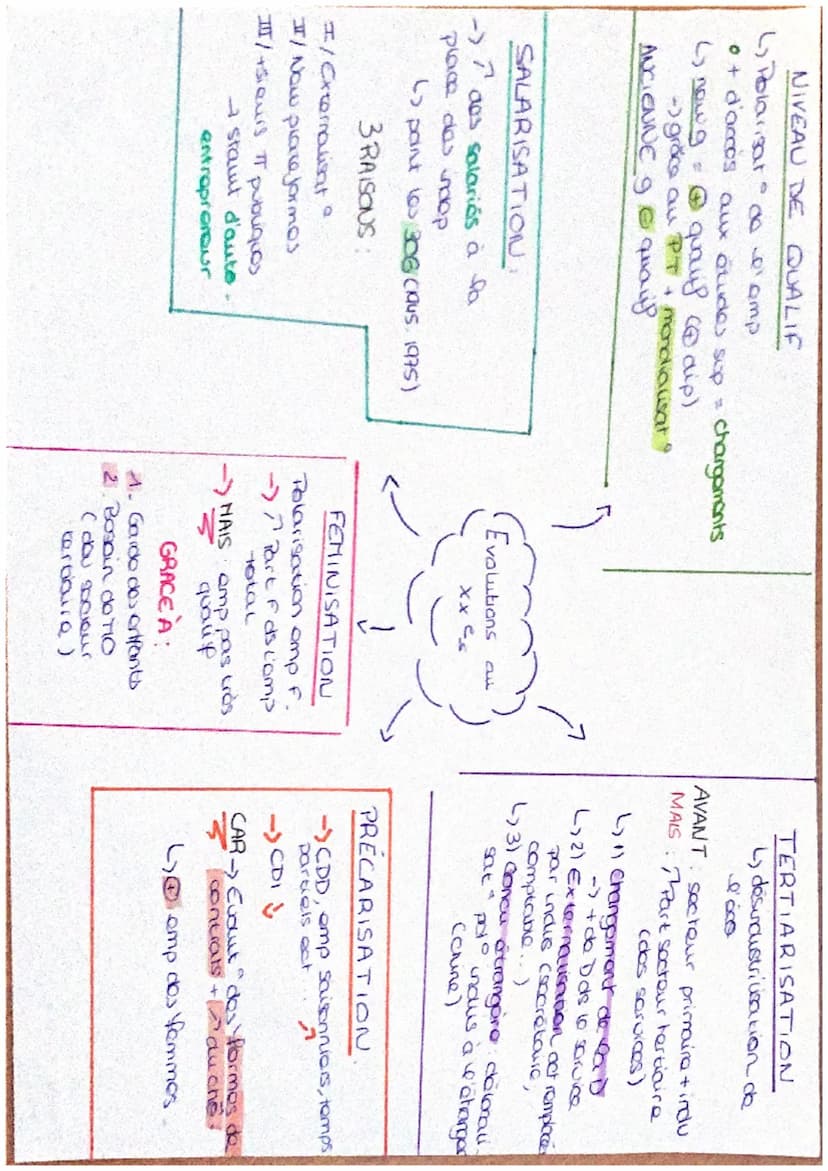 NIVEAU DE QUALIF
↳ Polarisat° de l'emp
• + d'accès aux études sup = changements
↳ new g = ⊕ qualif (⊕ dip)
→ grâce au PT + mondialisat°
ANCIENNE g ⊖ qualif
SALARISATION :
→ ↗ des salariés à la
place des indep
↳ pdnt les 30G (aus. 1975)
3 RAISONS :
I / Externalisat°
II / New plateformes
III / + sieurs π publiques
→ statut d'auto-
entrepreneur
Évolutions au
XXe s
FÉMINISATION
Polarisation emp F.
→ ↗ Part F ds l'emp
total
→ MAIS : emp pas très
qualif
GRÂCE À :
1. Garde des enfants
2. Besoin de MO
(du secteur
tertiaire)
TERTIARISATION
↳ désindustrilisation de
l'éco
AVANT : secteur primaire + indu
MAIS : ↗ Part secteur tertiaire
(des services)
↳ 1) Changement de la D
→ + de D ds le service
↳ 2) Externalisation act remplacée
par indus (secrétaire,
comptable...)
↳ 3) étrangère : délocali
sat° indus à l'étranger
(Chine)
PRÉCARISATION
→ CDD, emp saisonniers, temps
partiels ect... ↗
→ CDI ↘
CAR → Évolut° des formes de
contrats + ↗ du chô.
↳ ⊕ emp des femmes.